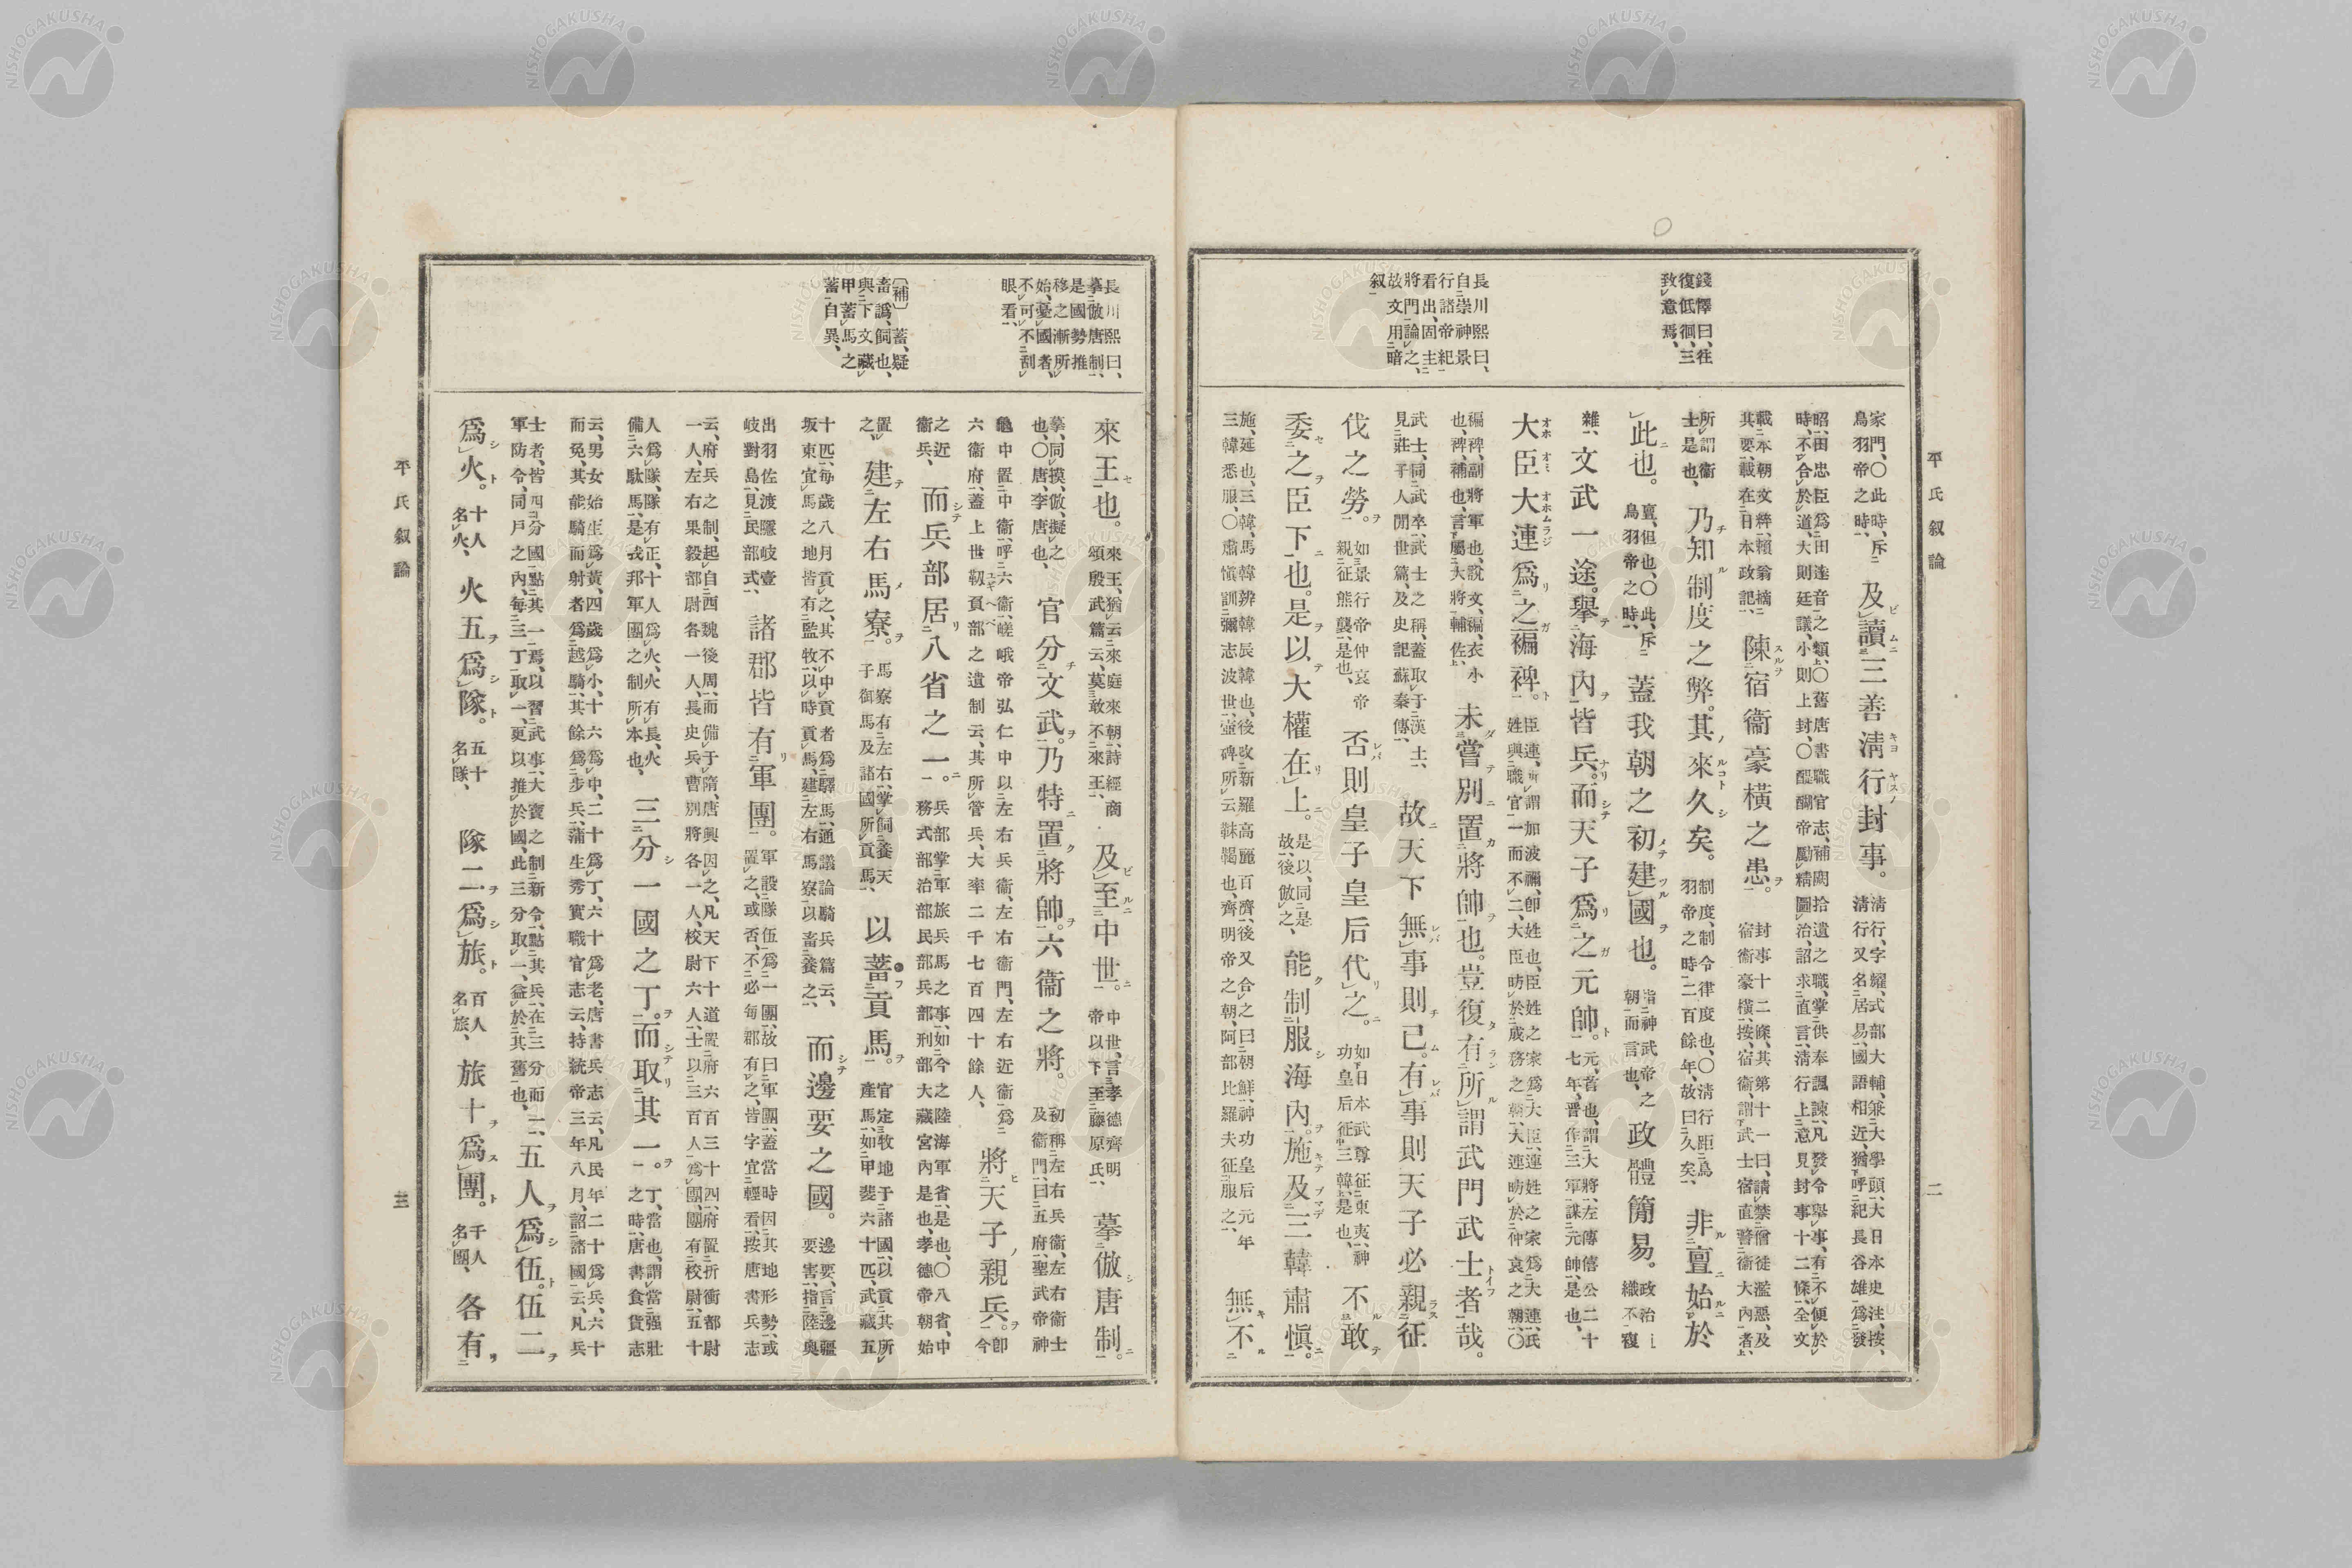 平氏叙論
二
錢懌曰、往
復低徊、三
致意焉、
長川熙曰、
自崇神景
行諸帝紀
看出、固主
將門論之、
故文用暗
叙
家門、〇此時、斥鳥羽帝之時、及讀三善淸行封事。淸行、字耀、式部大輔、兼大學頭、大日本史注、按、淸行又名居易、國語相近、猶呼紀長谷雄爲發
昭、田忠臣爲田達音之類、〇舊唐書職官志、補闕拾遺之職、掌供奉諷諫、凡發令擧事、有不便於時、不合於道、大則廷議、小則上封、〇醍醐帝勵精圖治、詔求直言、淸行上意見封事十二條、全文
載本朝文粹、賴翁摘其要、載在日本政記、陳宿衞豪橫之患。封事十二條、其第十一曰、請禁僧徒濫惡、及宿衞豪橫、按、宿衞、謂武士宿直警衞大內者、
所謂衞士是也、乃知制度之弊。其來久矣。制度、制令律度也、〇淸行距鳥羽帝之時、二百餘年、故曰久矣、非亶始於
此也。亶、但也、〇此、斥鳥羽帝之時、蓋我朝之初建國也。指神武帝之朝而言也、政體簡易。政治織不複
雜、文武一途。擧海內皆兵。而天子爲之元帥。元、首也、謂大將、左傳僖公二十七年、晋作三軍、謀元帥、是也、
大臣大連爲之褊裨。臣連、所謂加波禰、卽姓也、臣姓之家爲大臣、連姓之家爲大連、氏姓與職官一而不二、大臣昉於成務之朝、大連昉於仲哀之朝、〇
褊裨、副將軍也、說文、褊、衣小也、裨、補也、言屬大將輔佐、未嘗別置將帥也。豈復有所謂武門武士者哉。
武士、同武卒、武士之稱、蓋取于漢土、見莊子人閒世篇、及史記蘇秦傳、故天下無事則已。有事則天子必親征
伐之勞。如景行帝仲哀帝親征熊襲、是也、否則皇子皇后代之。如日本武尊征東夷、神功皇后征三韓、是也、不敢
委之臣下也。是以大權在上。是以、同是故、後倣之、能制服海內。施及三韓肅愼。
施、延也、三韓、馬韓辨韓辰韓也、後改新羅高麗百濟、後又合之曰朝鮮、神功皇后元年三韓悉服、〇肅愼訓彌志波世、壺碑所云靺鞨也、齊明帝之朝、阿部比羅夫征服之、無不
平氏叙論
三
長川熙曰、
摹倣唐制、
是國勢推
移之漸所
始、憂國者、
不可不刮
眼看、
〔補〕蓄、疑
畜譌、飼也、
與下文藏
甲蓄馬之
蓄自異、
來王也。來王、猶云來庭來朝、詩經商頌殷武篇云、莫敢不來王、及至中世。中世、言孝德齊明帝以下至藤原氏、摹倣唐制。
摹、同摸、倣、擬之也、〇唐、李唐也、官分文武。乃特置將帥。六衞之將。初稱左右兵衞、左右衞士及衞門、曰五府、聖武帝神
龜中置中衞、呼六衞、嵯峨帝弘仁中以左右兵衞、左右衞門、左右近衞、爲六衞府、蓋上世靱負部之遺制云、其所管兵、大率二千七百四十餘人、將天子親兵。卽今
之近衞兵、而兵部居八省之一。兵部掌軍旅兵馬之事、如今之陸海軍省、是也、〇八省、中務式部治部民部兵部刑部大藏宮內是也、孝德帝朝始
置之、建左右馬寮。馬寮有左右、掌飼養天子御馬及諸國所貢馬、以蓄貢馬。官定牧地于諸國、以貢其所產馬、如甲斐六十匹、武藏五
十匹、每歲八月貢之、其不中貢者爲驛馬、通議論騎兵篇云、坂東宜馬之地皆有監牧、以時貢馬、建左右馬寮、以畜養之、而邊要之國。邊要、言邊疆要害、指陸奧
出羽佐渡隱岐壹岐對島、見民部式、諸郡皆有軍團。軍設隊伍爲一團、故曰軍團、蓋當時因其地形勢、或置之、或否、不必每郡有之、皆字宜輕看、按唐書兵志
云、府兵之制、起自西魏後周、而備于隋、唐興因之、凡天下十道、置府六百三十四、府置折衝都尉一人、左右果毅部尉各一人、長史兵曹別將各一人、校尉六人、士以三百人爲團、團有校尉、五十
人爲隊、隊有正、十人爲火、火有長、火備六駄馬、是我邦軍團之制所本也、三分一國之丁。而取其一。丁、當也、謂當强壯之時、唐書食貨志
云、男女始生爲黃、四歲爲小、十六爲中、二十爲丁、六十爲老、唐書兵志云、凡民年二十爲兵、六十而免、其能騎而射者爲越騎、其餘爲步兵、蒲生秀實職官志云、持統帝三年八月、詔諸國云、凡兵
士者、皆四分國、點其一焉、以習武事、大寶之制、新令、點其兵、在三分而一、軍防令、同戶之內、每三丁取一、更以推於國、此三分取一、益於其舊也、五人爲伍。伍二
爲火。十人名火、火五爲隊。五十名隊、隊二爲旅。百人名旅、旅十爲團。千人名團、各有